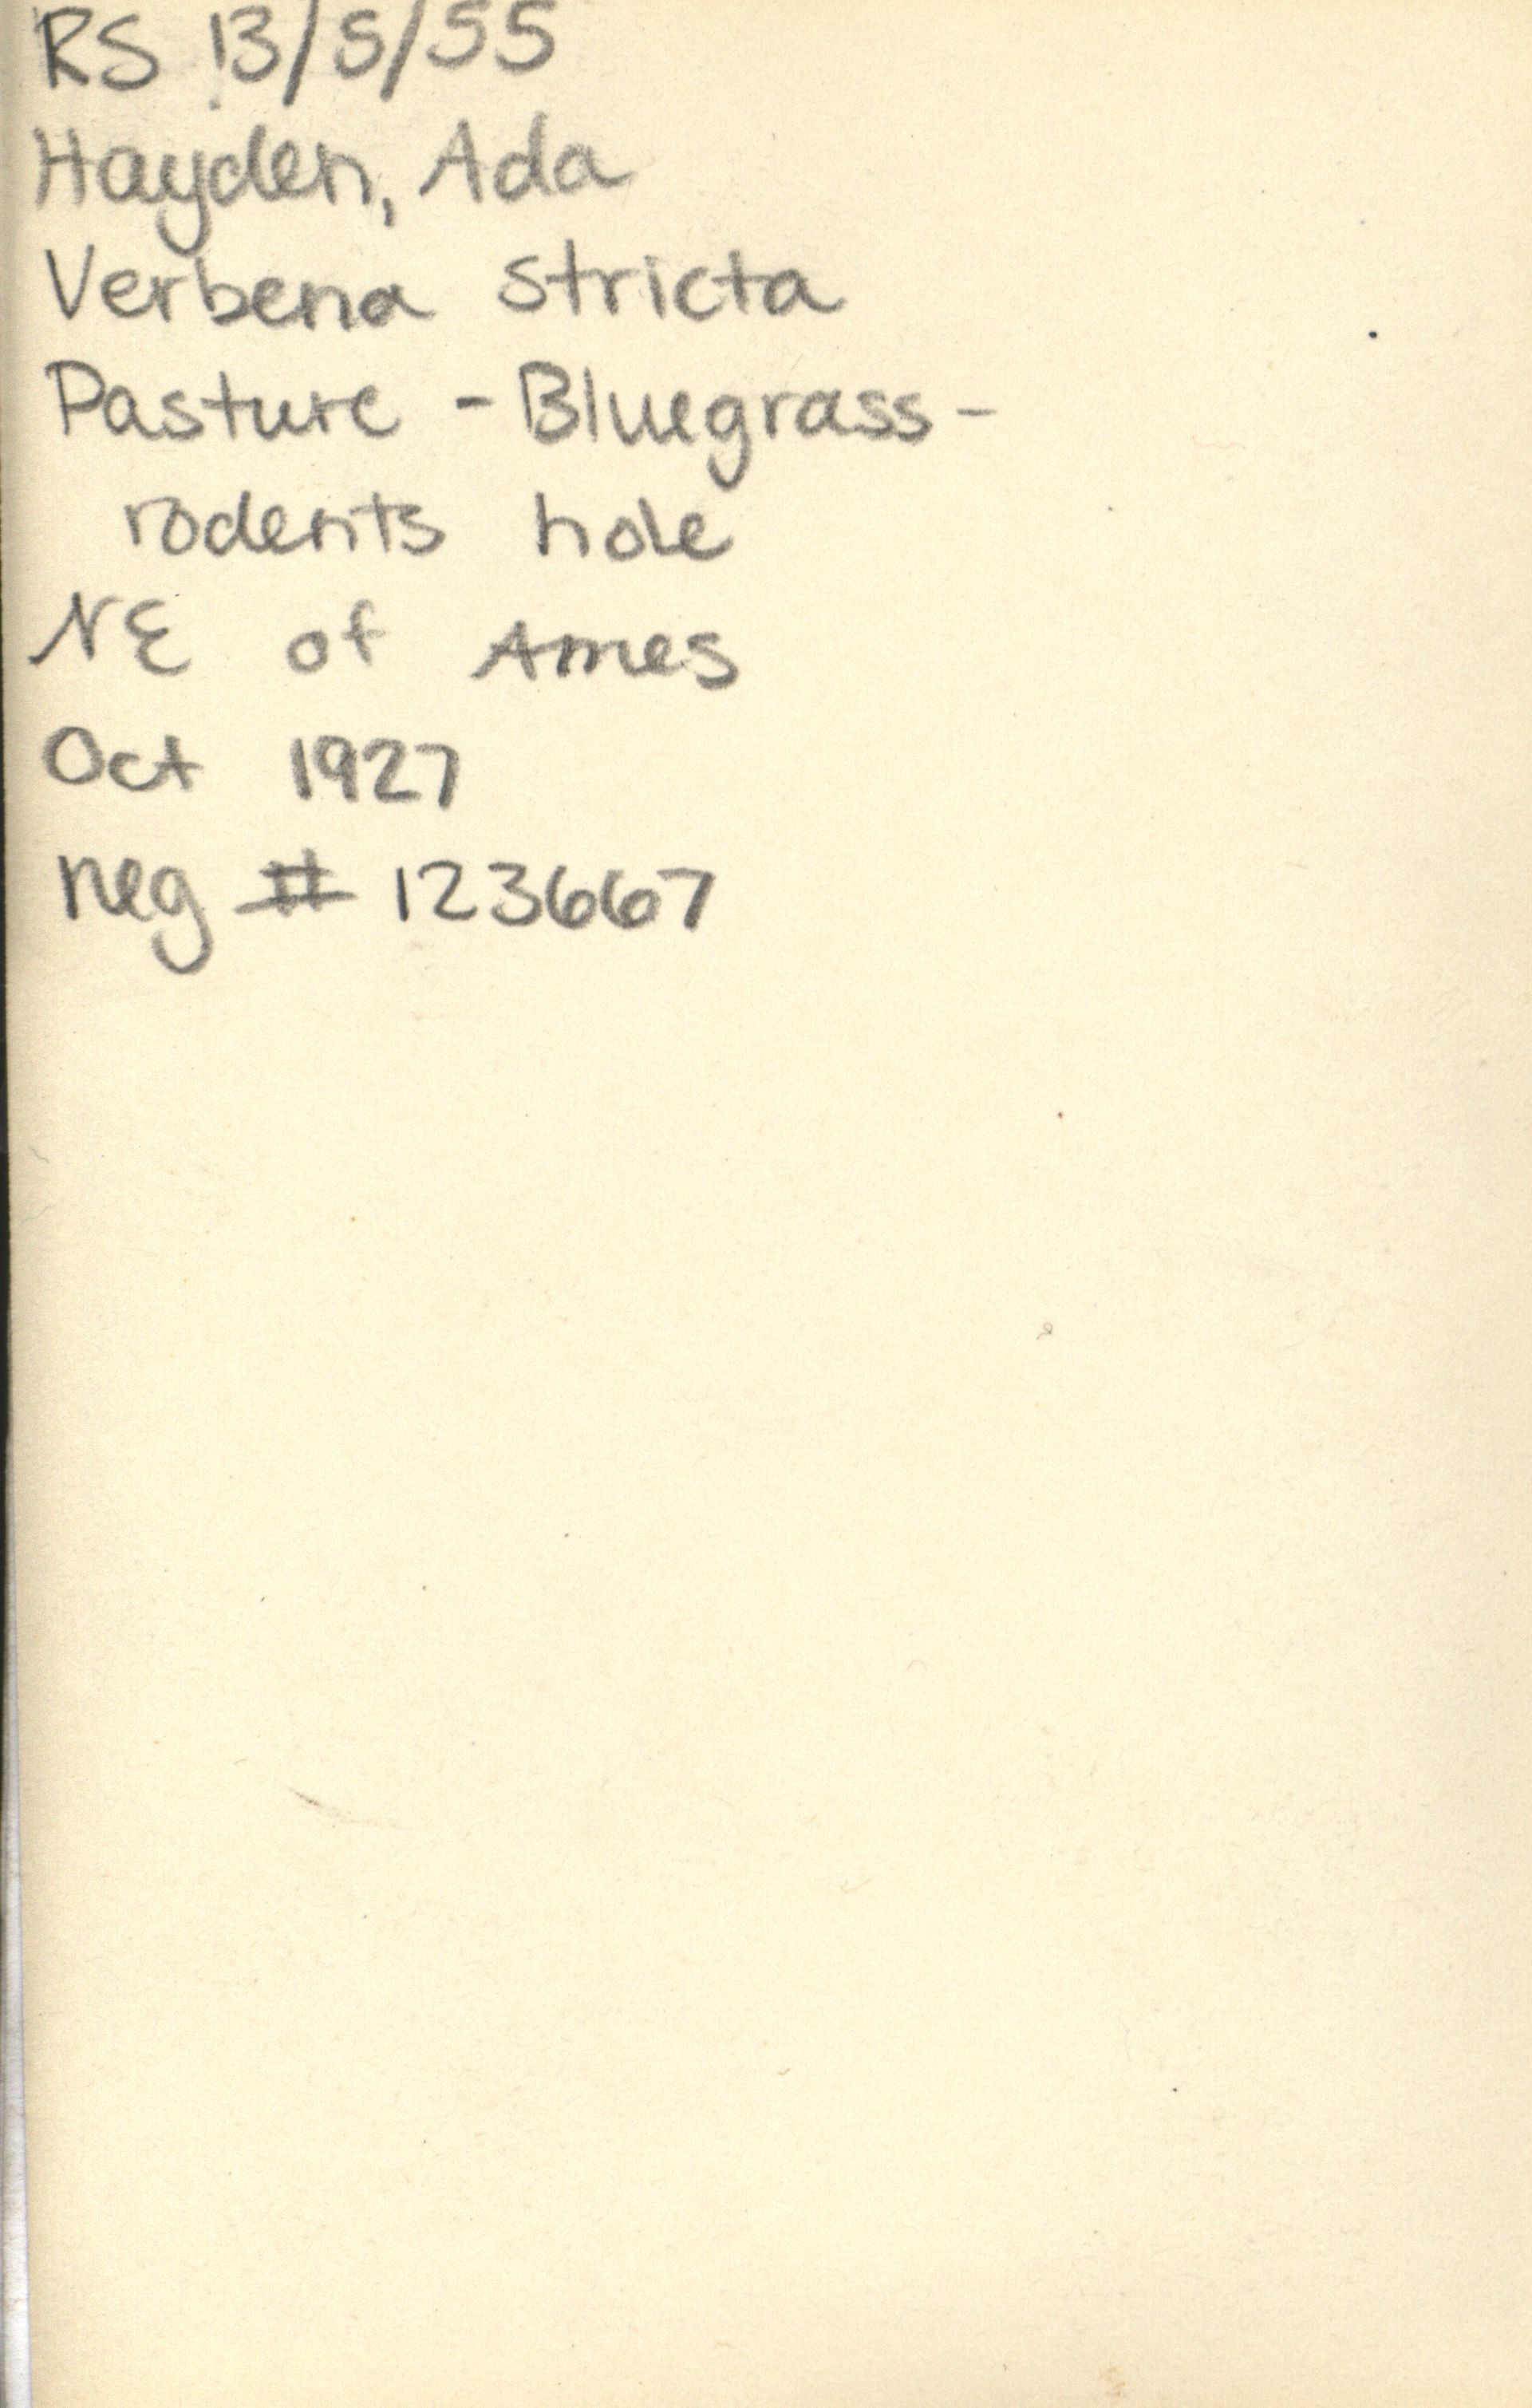 RS 13/5/55
Hayden, Ada
Verbena stricta
Pasture - Bluegrass -
rodents hole
NE of Ames
Oct 1927
neg # 123667